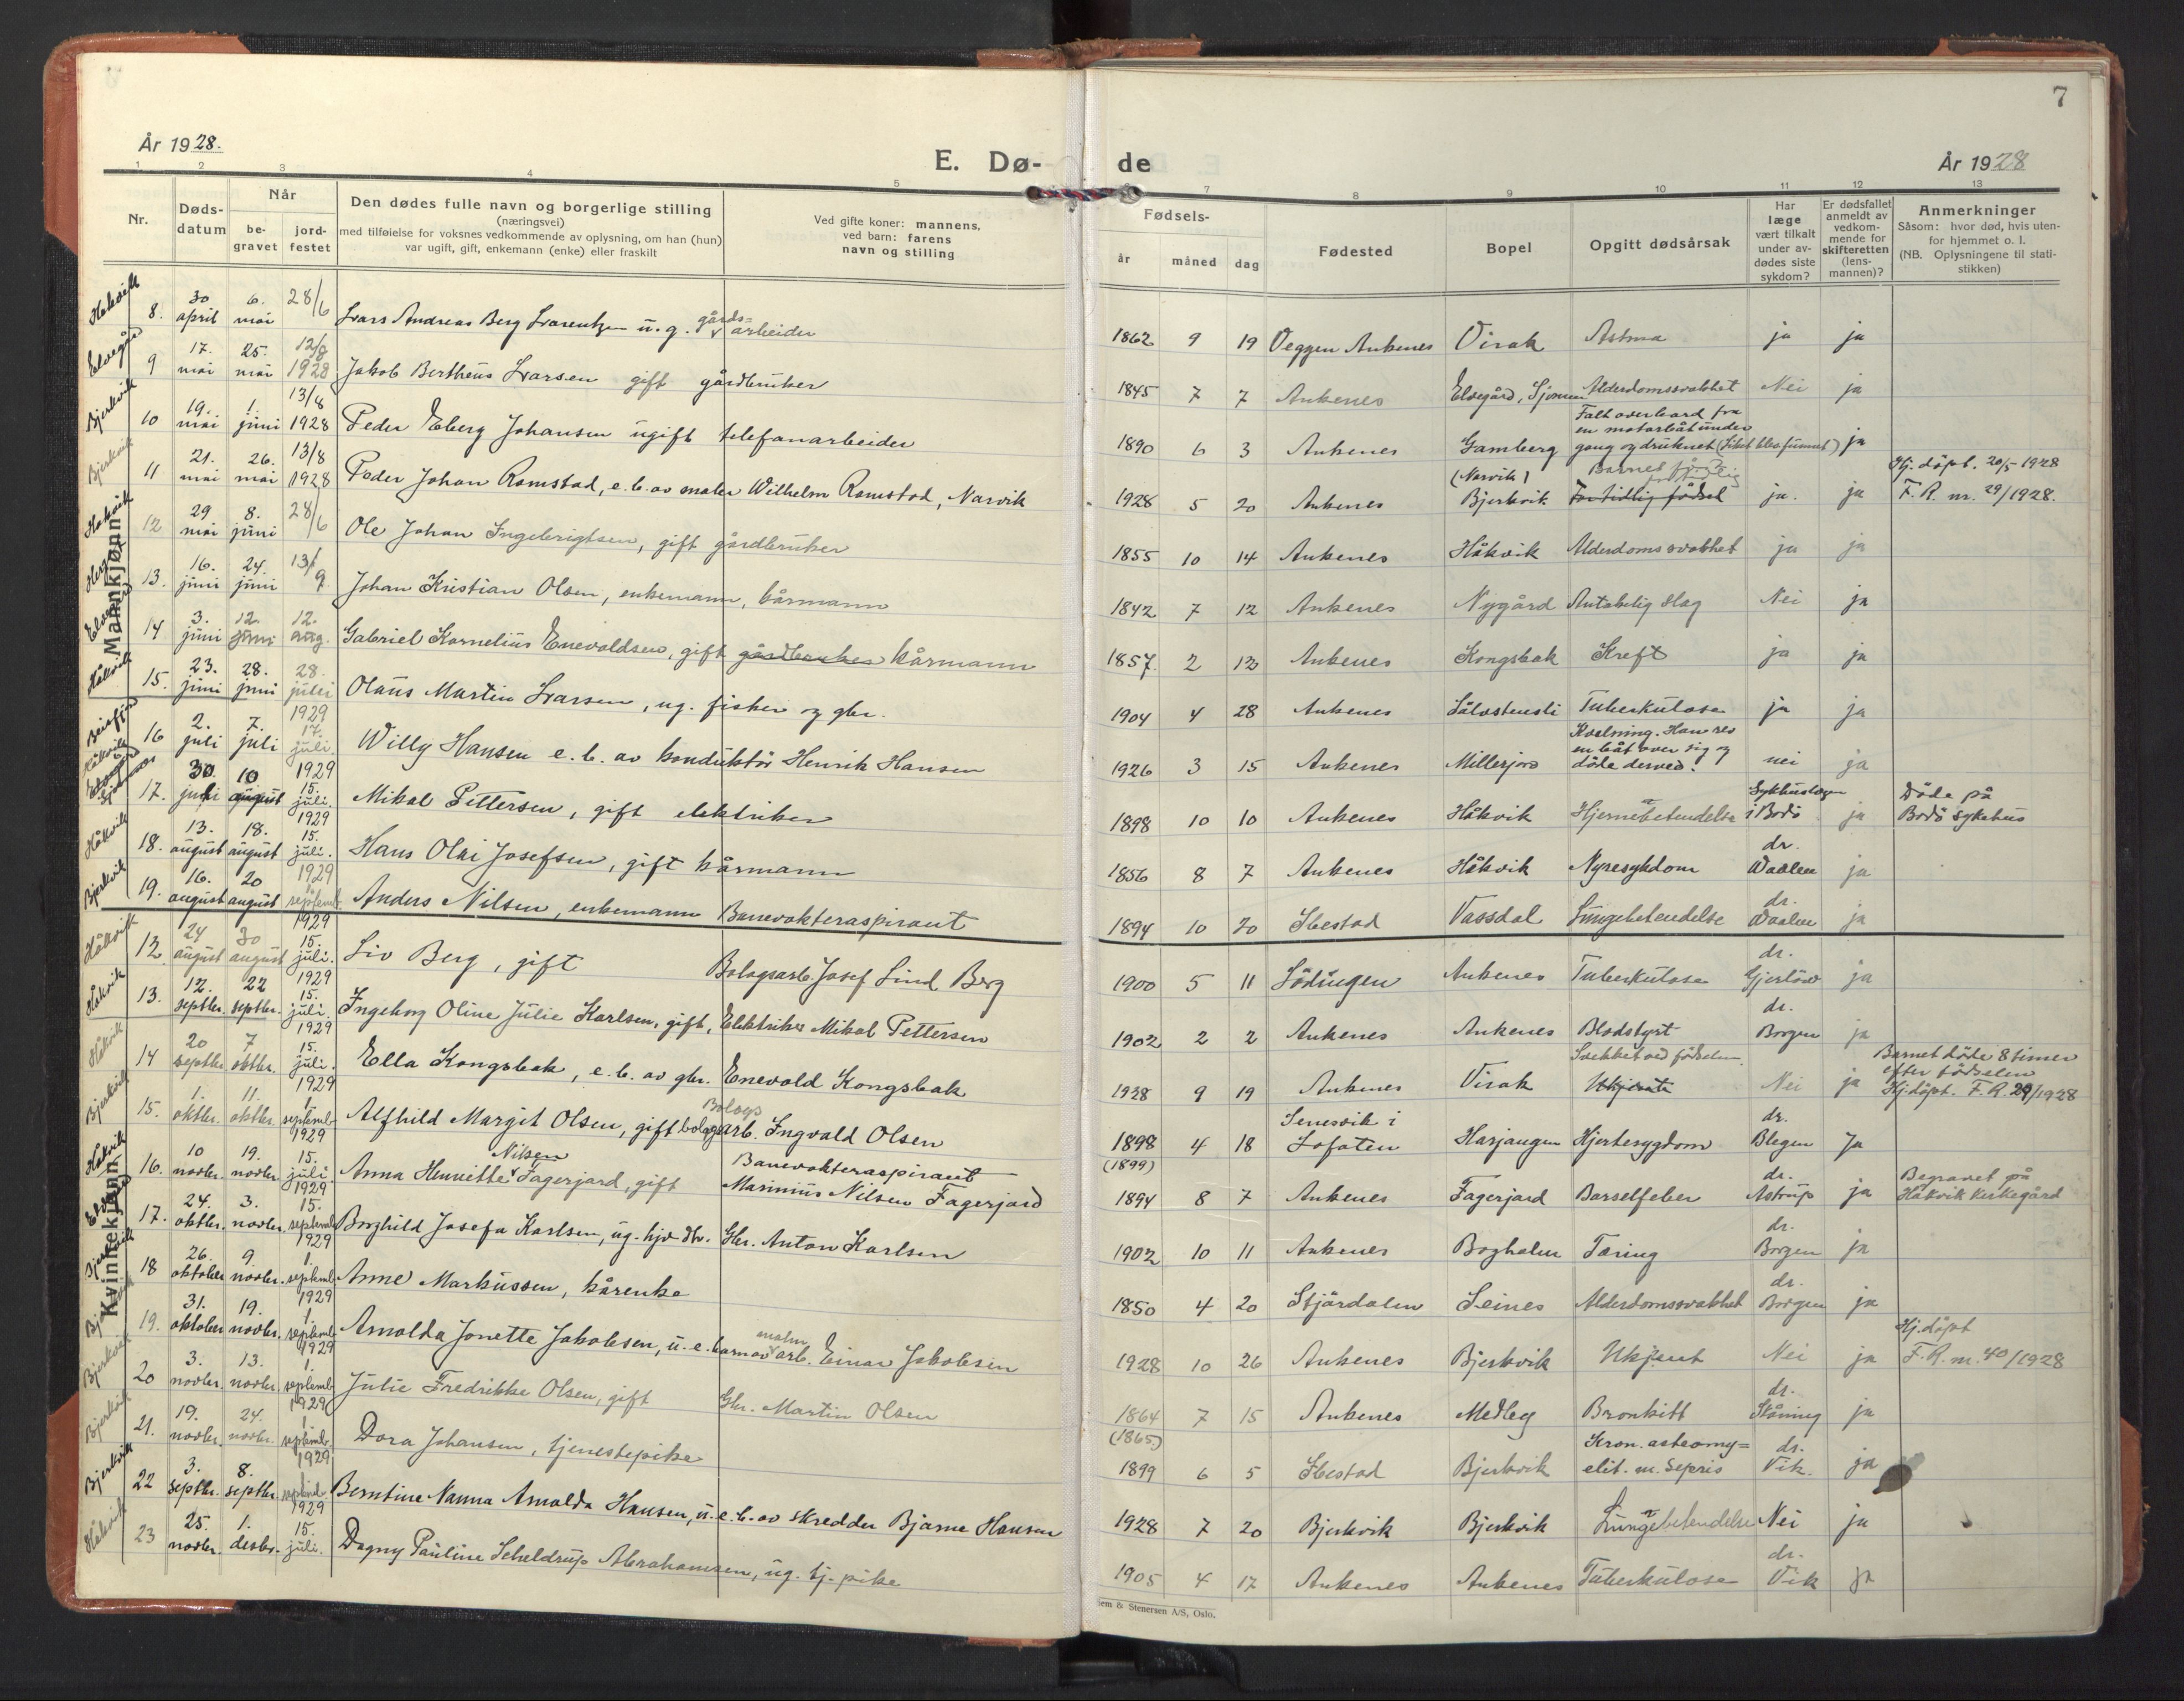 År 1928.
E. Dø-
de
År 1928
7
1 2 3 4 5 6 7 8 9 10 11 12 13
Nr.
Døds-
datum
Når
be-
gravet
jord-
festet
Den dødes fulle navn og borgerlige stilling
(næringsvei)
med tilføielse for voksnes vedkommende av oplysning, om han (hun)
var ugift, gift, enkemann (enke) eller fraskilt
Ved gifte koner: mannens,
ved barn: farens
navn og stilling
Fødsels-
år måned dag
Fødested
Bopel
Opgitt dødsårsak
Har
læge
vært tilkalt
under av-
dødes siste
sykdom?
Er dødsfallet
anmeldt av
vedkom-
mende for
skifteretten
(lens-
mannen)?
Anmerkninger
Såsom: hvor død, hvis uten-
for hjemmet o. l.
(NB. Oplysningene til stati-
stikken)
Mannkjønn
Håkvik 8. 30 april 6. mai 28/6 Lars Andreas Berg Larentzen u. g. gårds= arbeider 1862 9 19 Veggen Ankenes Virak Astma ja ja
Elvegård 9 17. mai 25. mai 12/8 1928 Jakob Bertheus Larsen gift gårdbruker 1845 7 7 Ankenes Elvegård, Sjomen Alderdomssvakhet Nei ja
Bjerkvik 10 19. mai 1. juni 13/8 1928 Peder Eberg Johansen ugift telefonarbeider 1890 6 3 Ankenes Gamberg Falt overbord fra en motorbåt under gang og druknet (Liket blev funnet) ja
Bjerkvik 11 21. mai 26. mai 13/8 1928 Peder Johan Romstad, e. b. av maler Wilhelm Romstad, Narvik 1928 5 20 Ankenes (Narvik) Bjerkvik For tidlig fødsel ja. ja Hj. döpt. 20/5 1928 F. R. nr. 29/1928.
Håkvik 12 29 mai 8. juni 28/6 Ole Johan Ingebrigtsen, gift gårdbruker 1855 10 14 Ankenes Håkvik Alderdomssvakhet ja ja
13. 16. juni 24. juni 13/9 Johan Kristian Olsen, enkemann, kårmann 1842 7 12 Ankenes Nygård Antakelig slag Nei ja
14 3. juni 12. juni 12. aug. Gabriel Kornelius Enevoldsen, gift gårdbruker kårmann 1857. 2 Ankenes Kongsbak Kreft ja ja
Håkvik 15. 23. juni 28. juni 28. juli Olaus Martin Larsen, ug. fisker og gbr. 1904 4 28 Ankenes Tuberkulose ja ja
Beisfjord 16 2. juli 7. juli 1929 17. juli. Willy Hansen e. b. av konduktör Henrik Hansen 1926 3 15 Ankenes Millerjord Kvelning. Han rev en båt over sig og döde derved. nei ja
Håkvik 17. 30. juli 10 august 1929 15. juli. Mikal Pettersen, gift elektriker 1898 10 10 Ankenes Håkvik Hjernebetendelse i Bodö ja Döde på Bodö sykehus
Håkvik 18. 13. august 18. august 1929 15. juli. Hans Olai Josefsen, gift kårmann 1856 8 7 Ankenes Håkvik Nyresykdom dr. Waalen ja
Bjerkvik 19. 16. august 20 august 1929 1. septemb. Anders Nilsen, enkemann Banevokteraspirant 1894 10 20 Ibestad Vassdal Lungebetendelse dr. Waalen ja
Kvinnekjønn
Håkvik 12. 24 august 30 august 1929 15. juli. Liv Berg, gift Bologsarb. Josef Lind Berg 1900 5 11 Lödingen Ankenes Tuberkulose dr. Gjerlöw ja
Håkvik 13. 12. septbr. 22 septbr. 1929 15. juli. Ingeborg Oline Julie Karlsen, gift, Elektriker Mikal Pettersen 1902 2 2 Ankenes Ankenes Blodstyrt dr. Borgen ja
Håkvik 14 20 septbr. 7 oktbr. 1929 15. juli. Ella Kongsbak, e. b. av gbr. Enevold Kongsbak 1928 9 19 Ankenes Virak Svekket ved födselen Ukjent Nei ja Barnet döde 8 timer efter födselen Hj. döpt. F. R. 29/1928
Bjerkvik 15. 1. oktbr. 11. oktbr. 1929 1. septemb. Alfhild Margit Olsen, gift bologsarb. Ingvald Olsen 1898 (1899) 4 18 Senesvik i Lofoten Harjangen Hjertesygdom dr. Blegen Ja
Håkvik 16. 10 novbr. 19. novbr. 1929 15. juli Anna Henriette Nilsen Fagerjord, gift Banevokteraspirant Marinius Nilsen Fagerjord 1894 8 7 Ankenes Fagerjord Barselfeber dr. Astrup ja Begravet på Håkvik kirkegård
17. 24. oktbr. 3. novbr. 1929 15. septemb. Borghild Josefa Karlsen, ug. hjv. dtr. Gbr. Anton Karlsen 1902 10 11 Ankenes Bogholm Tæring dr. Borgen ja
Bjerkvik 18 26. oktober 9. novbr. 1929 1. septemb. Anne Markussen, kårenke 1850 4 20 Stjördalen Seines Alderdomssvakhet dr. Borgen ja
19. 31. oktober 19. novbr. 1929 1. septemb. Arnolda Jonette Jakobsen, u. e. barn av malm arb. Einar Jakobsen 1928 10 26 Ankenes Bjerkvik Ukjent Nei ja Hj. döpt F. R. nr. 40/1928
Bjerkvik 20 3. novbr. 13. novbr. 1929 1. septemb. Julie Fredrikke Olsen, gift Gbr. Martin Olsen 1864 (1865) 7 15 Ankenes Medby Bronkitt dr. ja
Bjerkvik 21. 19. novbr. 24. novbr. 1929 1. septemb. Dora Johansen, tjenestepike 1899 6 5 Ibestad Bjerkvik Kron. osteomy= elit. m. Sepsis dr. Vik. ja
Bjerkvik 22 3. septbr. 8. septbr. 1929 Berntine Nanna Arnolda Hansen, u. e. b. av skredder Bjarne Hansen 1928 7 20 Bjerkvik Bjerkvik Lungebetendelse Nei ja
Håkvik 23 25. novbr. 1. desbr. 1929 15. juli. Dagny Pauline Scheldrup Abrahamsen, ug. tj. pike 1905 4 17 Ankenes Ankenes Tuberkulose dr. Vik ja
& Stenersen A/S, Oslo.